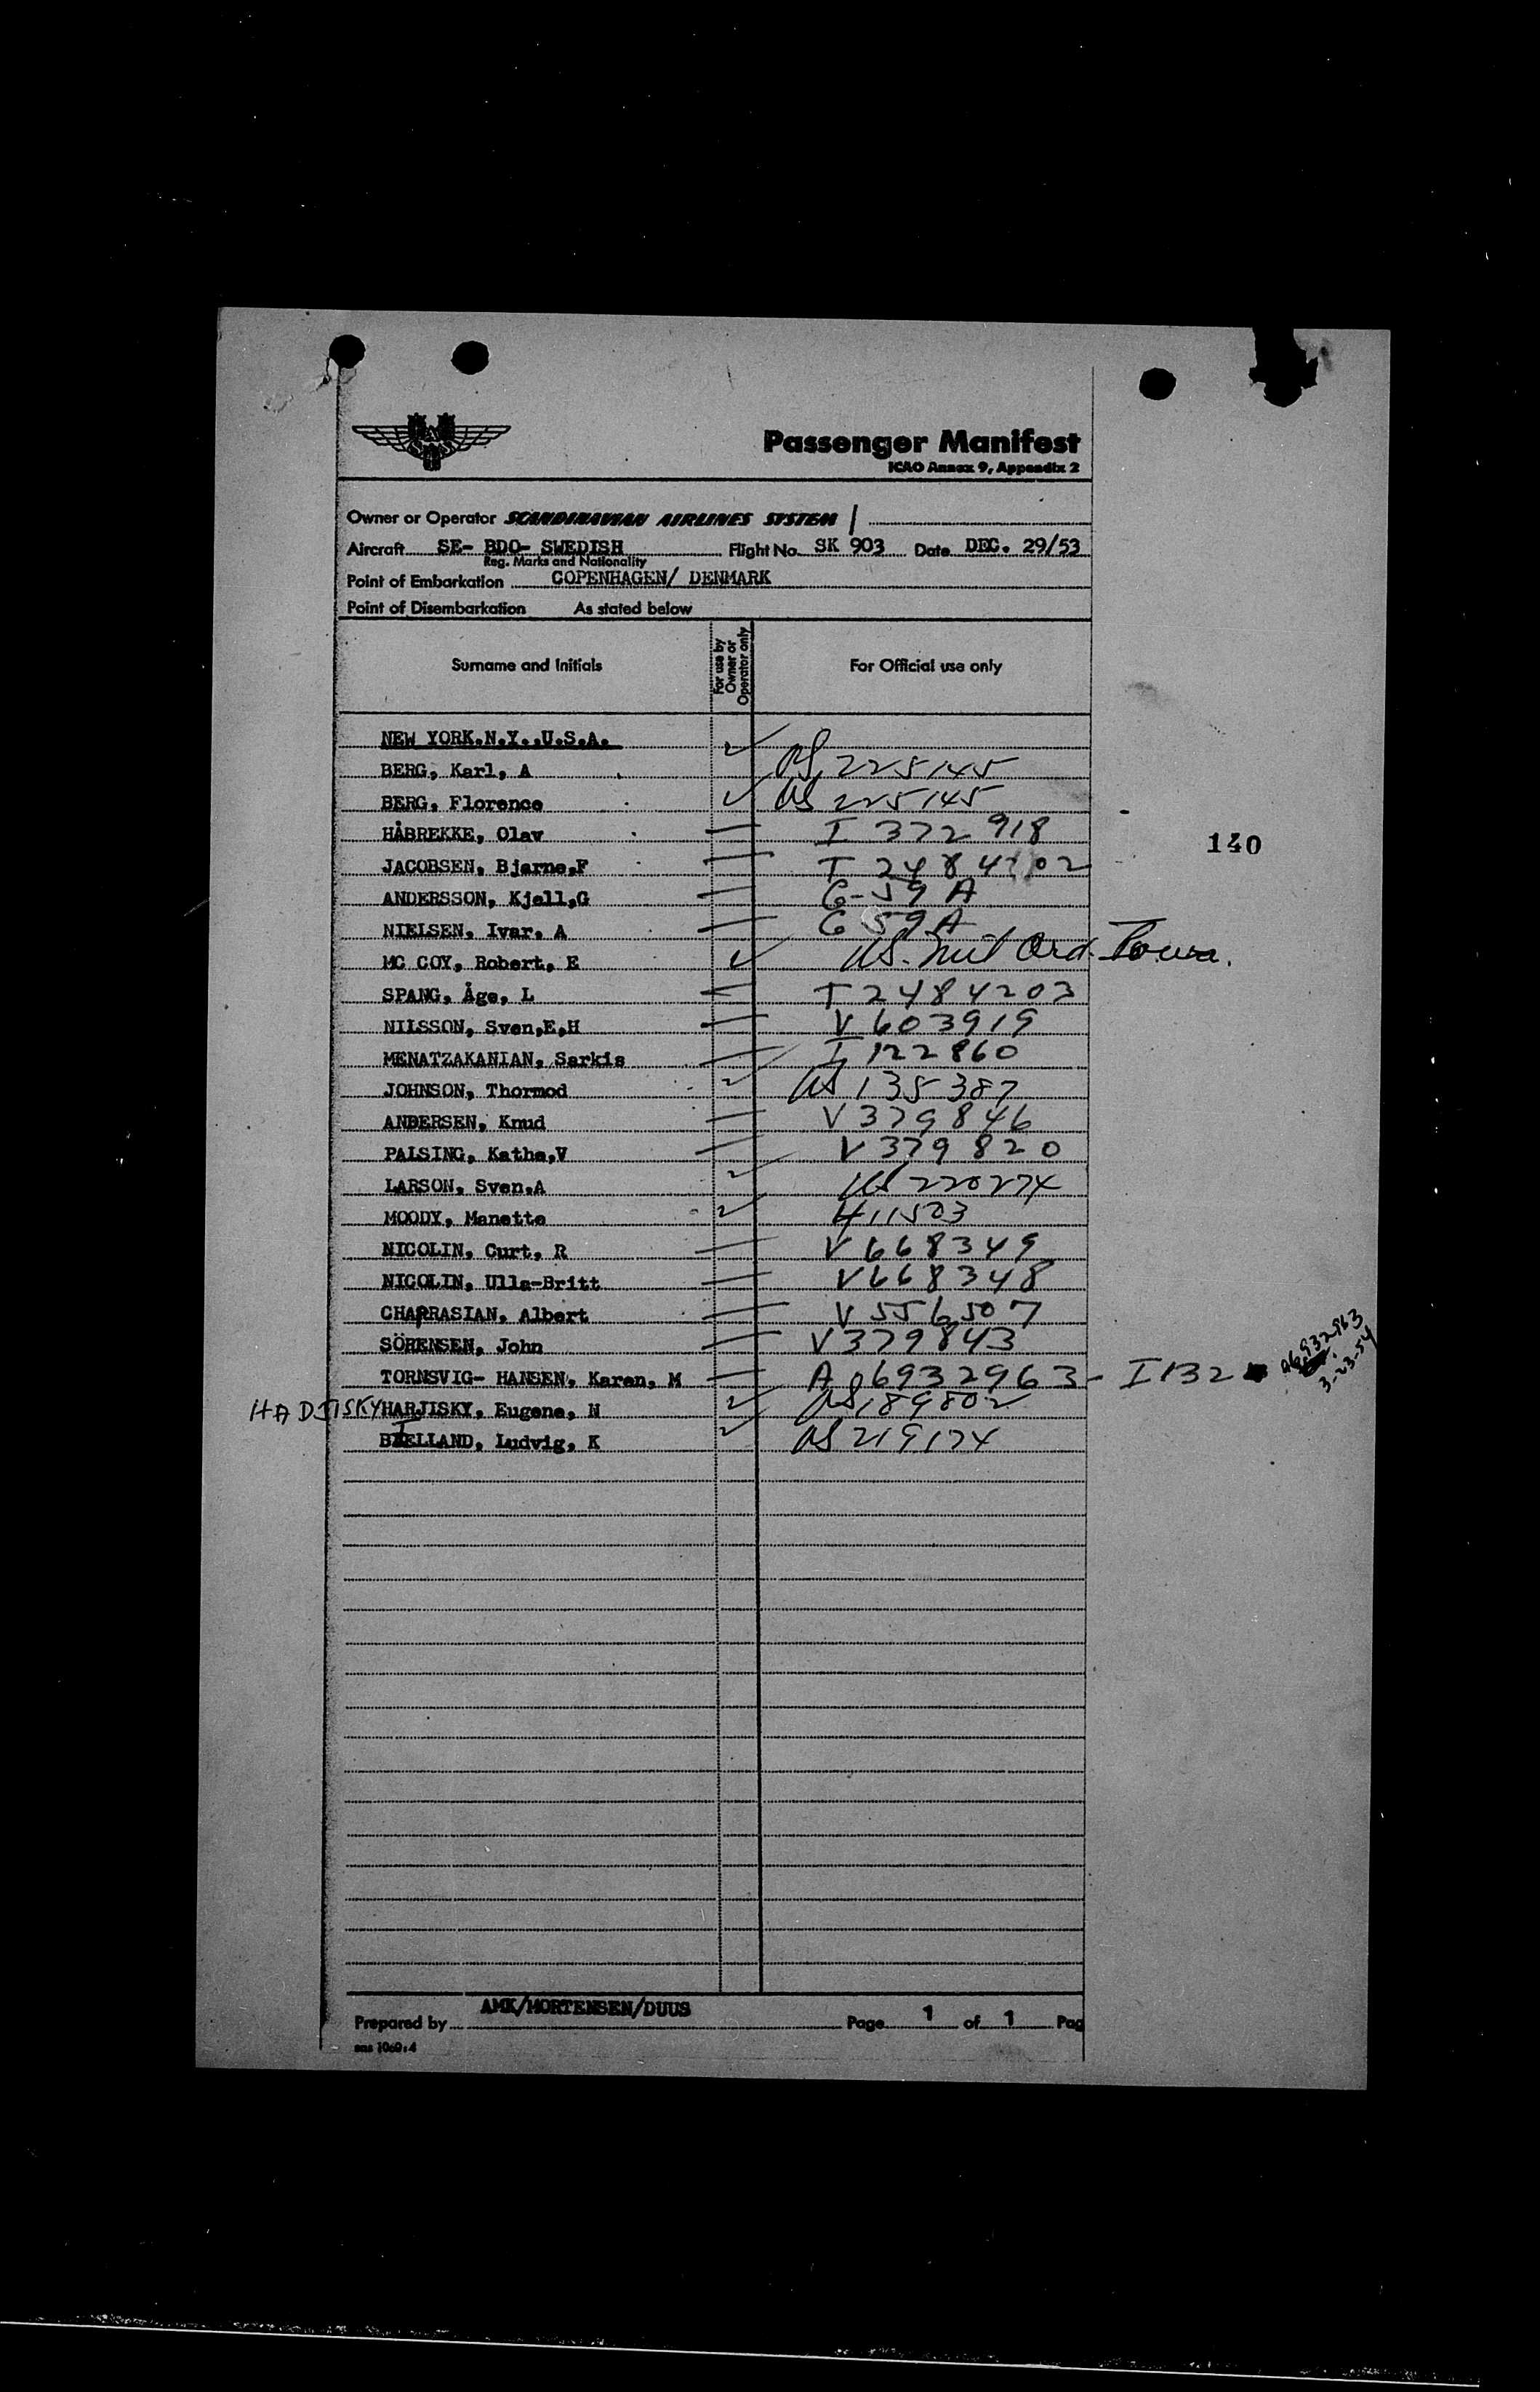 Passenger Manifest
ICAO Annex 9, Appendix 2
Owner or Operator SCANDINAVIAN AIRLINES SYSTEM
Aircraft SE- BDO- SWEDISH Flight No. SK 903 Date DEC. 29/53
Reg. Marks and Nationality
Point of Embarkation COPENHAGEN/ DENMARK
Point of Disembarkation As stated below
Surname and Initials For use by Owner or Operator only For Official use only
NEW YORK.N.Y.,U.S.A.
BERG, Karl, A US 225145
BERG, Florence US 225145
HÅBREKKE, Olav I 372918
140
JACOBSEN, Bjarne,F T 2484202
ANDERSSON, Kjell,G G-59 A
NIELSEN, Ivar, A G 59 A
MC COY, Robert, E US. Mil Ord.
SPANG, Åge, L T 2484203
NILSSON, Sven,E,H V 603919
MENATZAKANIAN, Sarkis I 122860
JOHNSON, Thormod US 135387
ANDERSEN, Knud V 379846
PALSING, Kathe,V V 379820
LARSON, Sven,A US 220274
MOODY, Manette 411503
NICOLIN, Curt, R V 668349
NICOLIN, Ulla-Britt V 668348
CHARRASIAN, Albert V 556507
SÖRENSEN, John V 379843
TORNSVIG- HANSEN, Karen, M A 6932963 - I132 a6932963
3-23-54
HADJISKY HARJISKY, Eugene, N US 189802
BIELLAND, Ludvig, K US 219174
AMK/MORTENSEN/DUUS
Prepared by Page 1 of 1 Pag
sas 1060:4